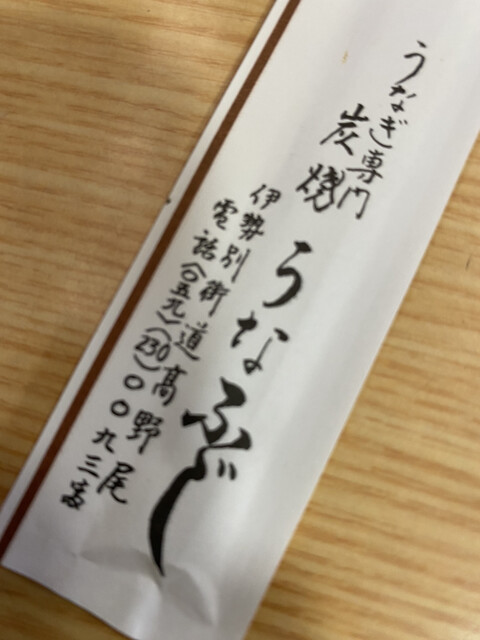 うなぎ専門
炭焼
うなふじ
伊勢別街道高野尾
電話(〇五九)(230)〇〇九三番